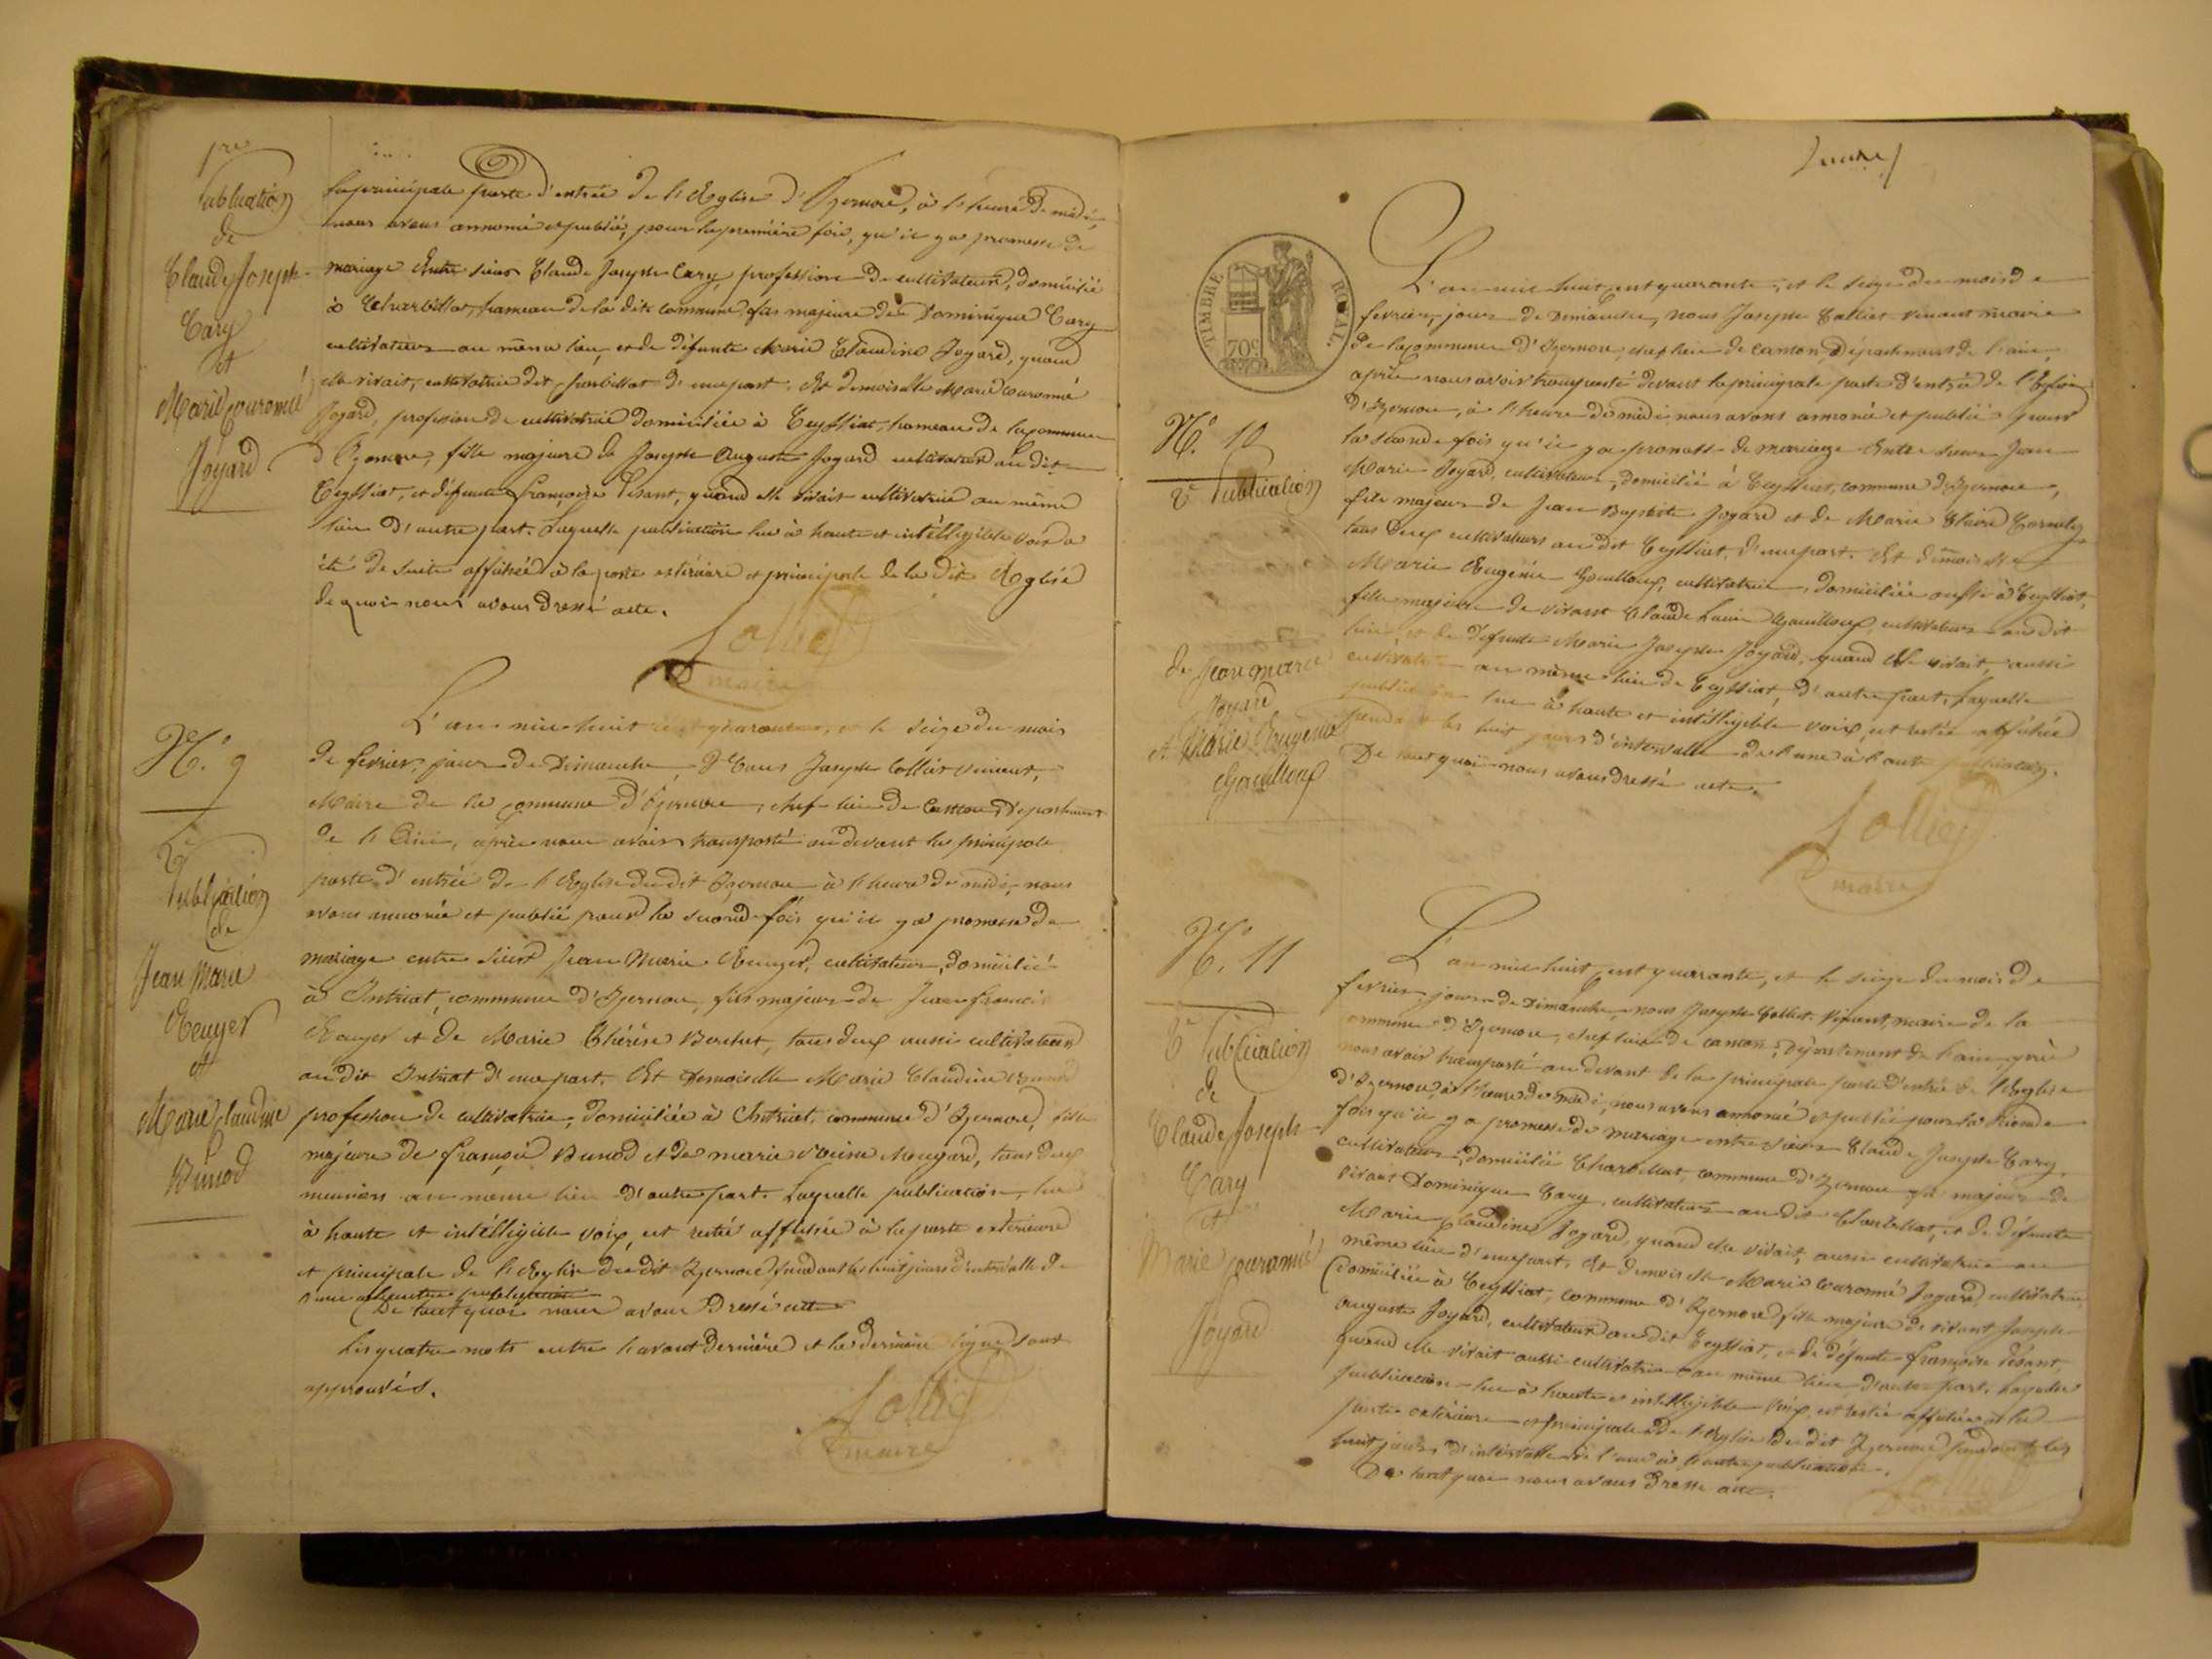 pre
Publication
de
Claude Joseph
Cary
et
Marie Couronné
Joyard
la principale porte d'entrée de l'Eglise d'Izernore, à l'heure de midi,
nous avons annoncé et publié, pour la première fois, qu'il y a promesse de
mariage Entre sieur Claude Joseph Cary, profession de cultivateur, domicilié
à Charbillat, hameau de la dite commune, fils majeur de Dominique Cary
cultivateur au même lieu, et de défunte Marie Claudine Joyard, quand
elle vivait, cultivatrice dit Charbillat d'une part. Et demoiselle Marie Couronné
Joyard, profession de cultivatrice domiciliée à Ceyssiat, hameau de la commune
d'Izernore, fille majeure de Joseph Auguste Joyard cultivateur au dit
Ceyssiat, et défunte françoise Pesant, quand elle vivait cultivatrice au même
lieu d'autre part. Laquelle publication lue à haute et intélligible voix a
été de suite affichée à la porte extérieure et principale de la dite Eglise
de quoi nous avons dressé acte.
Colliet
maire
N.º 9
2e
Publication
de
Jean Marie
Ecuyer
et
Marie Claudine
Bunod
L'an mil huit cent quarante, et le seize du mois
de fevrier, jour de Dimanche, Nous Joseph Colliet Vincent,
Maire de la Commune d'Izernore, chef-lieu de Canton, Département
de l'Ain, après nous avoir transporté au devant la principale
porte d'entrée de l'Eglise du dit Izernore à l'heure de midi, nous
avons annoncé et publié pour la seconde fois qu'il y a promesse de
mariage entre sieur Jean Marie Ecuyer, cultivateur, domicilié
à Intriat, commune d'Izernore, fils majeur de Jean françois
Ecuyer et de Marie Thérèse Berchet, tous deux aussi cultivateurs
au dit Intriat d'une part. Et Demoiselle Marie Claudine Bunod
profession de cultivatrice, domiciliée à Intriat, commune d'Izernore, fille
majeure de françois Bunod et de marie Mougard, tous deux
meuniers au même lieu d'autre part. Laquelle publication, lue
à haute et intélligible voix, est restée affichée à la porte extérieure
et principale de l'Eglise du dit Izernore pendant les huit jours d'intervalle de
l'une à l'autre publication
De tout quoi nous avons Dressé acte
Les quatre mots entre l'avant dernière et la dernière ligne sont
approuvés.
Colliet
maire
TIMBRE ROYAL.
70c
N.º 10
2e Publication
de Jean marie
Joyard
et Marie Eugenie
Gouilloux
L'an mil huit cent quarante, et le seize du mois de
fevrier, jour de Dimanche, nous Joseph Colliet Vincent maire
de la commune d'Izernore, chef lieu de canton, Département de l'ain,
après nous avoir transporté devant la principale porte d'entrée de l'Eglise
d'Izernore, à l'heure de midi nous avons annoncé et publié pour
la seconde fois qu'il y a promesse de mariage Entre sieur Jean
Marie Joyard, cultivateur, domicilié à Ceyssiat, commune d'Izernore,
fils majeur de Jean Baptiste Joyard et de Marie Claire
tous deux cultivateurs au dit Ceyssiat, d'une part. Et demoiselle
Marie Eugénie Gouilloux, cultivatrice, domiciliée aussi à Ceyssiat,
fille majeure de vivant Claude Gouilloux, cultivateur au dit
lieu, et de défunte Marie Josephe Joyard, quand elle vivait, aussi
cultivatrice au même lieu de Ceyssiat, d'autre part, Laquelle
publication lue à haute et intélligible voix, est restée affichée
pendant les huit jours d'intervalle de l'une à l'autre publication.
De tout quoi nous avons dressé acte.
Colliet
maire
N.º 11
2e Publication
de
Claude Joseph
Cary
et
Marie Couronné
Joyard
L'an mil huit cent quarante, et le seize du mois de
fevrier, jour de Dimanche, nous Joseph Colliet Vincent, maire de la
commune d'Izernore, chef lieu de canton, Département de l'ain, après
nous avoir transporté au devant de la principale porte d'entrée de l'Eglise
d'Izernore, à l'heure de midi, nous avons annoncé et publié pour la seconde
fois qu'il y a promesse de mariage entre sieur Claude Joseph Cary,
cultivateur, domicilié Charbillat, commune d'Izernore, fils majeur de
vivant Dominique Cary, cultivateur au dit Charbillat, et de défunte
Marie Claudine Joyard, quand elle vivait, aussi cultivatrice au
même lieu d'une part. Et demoiselle Marie Couronné Joyard, cultivatrice,
domiciliée à Ceyssiat, commune d'Izernore, fille majeure de vivant Joseph
auguste Joyard, cultivateur au dit Ceyssiat, et de défunte françoise Pesant
quand elle vivait aussi cultivatrice au même lieu d'autre part. Laquelle
publication lue à haute et intelligible voix, est restée affichée à la
porte extérieure et principale de l'Eglise du dit Izernore pendant les
huit jours d'intervalle de l'une à l'autre publication.
De tout quoi nous avons dressé acte.